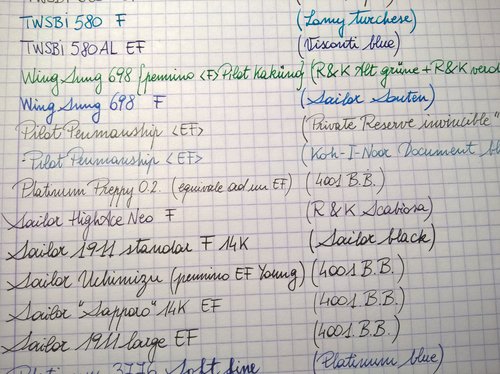 TWSBI 580 F (Lamy turchese)
TWSBI 580AL EF (Visconti blue)
Wing Sung 698 [pennino <F> Pilot Kakuno] (R&K Alt grüne + R&K verd
Wing Sung 698 F (Sailor Souten)
Pilot Penmanship <EF> (Private Reserve invincible"
Pilot Penmanship <EF> (Koh-I-Noor Document bl
Platinum Preppy 0.2. (equivale ad un EF) (4001 B.B.)
Sailor HighAce Neo F (R&K Scabiosa)
Sailor 1911 standar F 14K (Sailor black)
Sailor Uchimizu (pennino EF Young) (4001 B.B.)
Sailor "Sapporo" 14K EF (4001 B.B.)
Sailor 1911 large EF (4001 B.B.)
3776 Soft fine (Platinum blue)